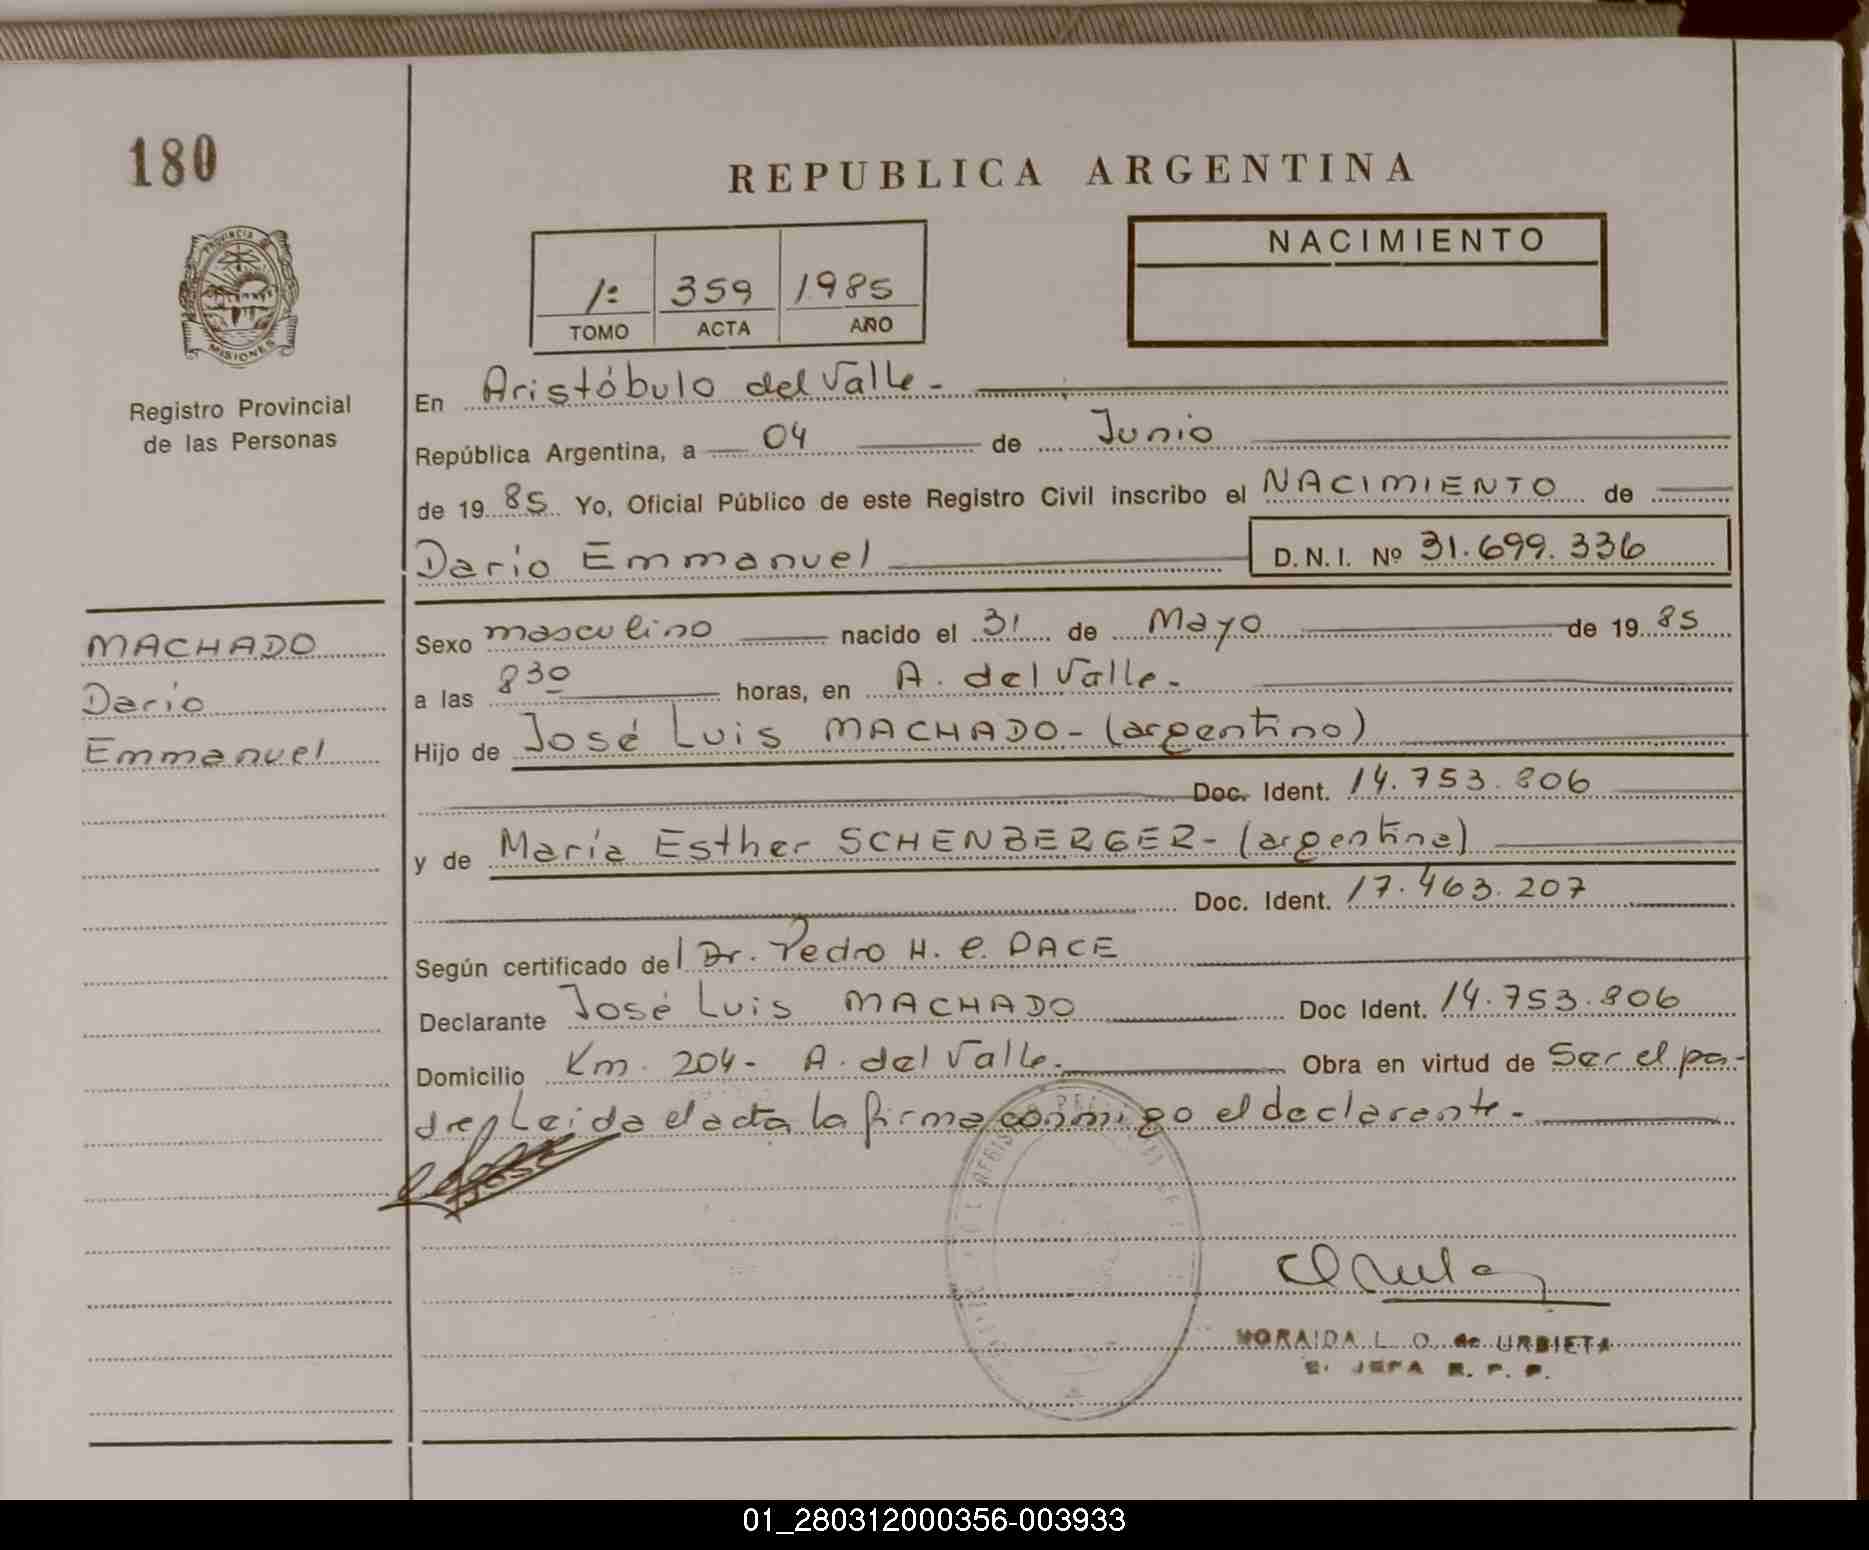 180
REPUBLICA ARGENTINA
PROVINCIA DE
MISIONES
Registro Provincial
de las Personas
1º 359 1985
TOMO ACTA AÑO
NACIMIENTO
En Aristóbulo del Valle.-
República Argentina, a 04 de Junio
de 1985 Yo, Oficial Público de este Registro Civil inscribo el NACIMIENTO de
Darío Emmanuel D.N.I. Nº 31.699.336
MACHADO
Darío
Emmanuel
Sexo masculino nacido el 31 de Mayo de 1985
a las 830 horas, en A. del Valle.-
Hijo de José Luis MACHADO- (argentino)
Doc. Ident. 14.753.806
y de María Esther SCHENBERGER- (argentina)
Doc. Ident. 17.463.207
Según certificado del Dr. Pedro H. C. PACE
Declarante José Luis MACHADO Doc Ident. 14.753.806
Domicilio Km. 204- A. del Valle.- Obra en virtud de Ser el pa-
dre, Leída el acta la firma conmigo el declarante.-
NORAIDA L. O. de URBIETA
JEFA R. P. P.
01_280312000356-003933